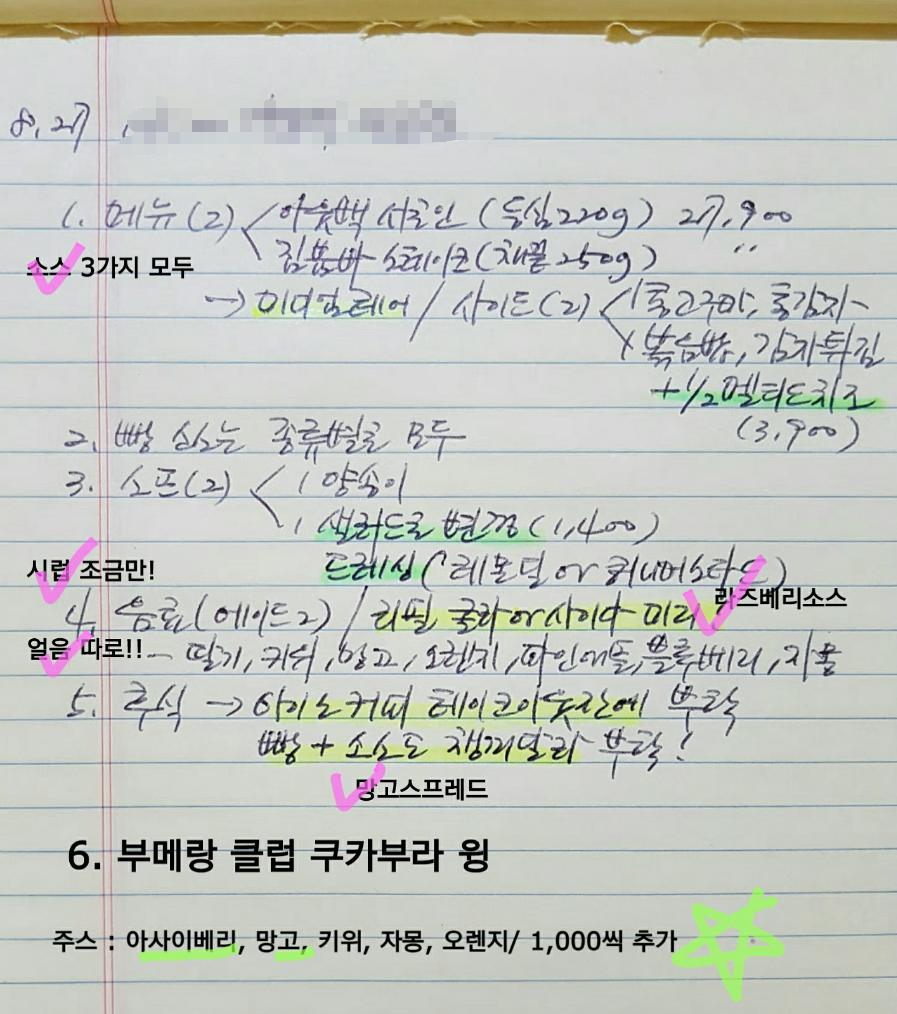 8.27
1. 메뉴(2) 아웃백 서로인(등심220g) 27,900
짐붐바 스테이크(채끝250g) 〃
소스 3가지 모두
→ 미디엄레어 / 사이드(2) 1 통고구마, 통감자
1 볶음밥, 감자튀김
+ 1/2 멜티드치즈
(3,900)
2. 빵 소스는 종류별로 모두
3. 스프(2) 1 양송이
1 샐러드로 변경(1,400)
드레싱(레몬딜 or 허니머스타드)
시럽 조금만!
라즈베리소스
4. 음료(에이드2) / 리필 콜라 or 사이다 미리
얼음 따로!! - 딸기, 키위, 망고, 오렌지, 파인애플, 블루베리, 자몽
5. 후식 → 아이스커피 테이크아웃잔에 부탁
빵 + 소스도 챙겨달라 부탁!
망고스프레드
6. 부메랑 클럽 쿠카부라 윙
주스 : 아사이베리, 망고, 키위, 자몽, 오렌지/ 1,000씩 추가